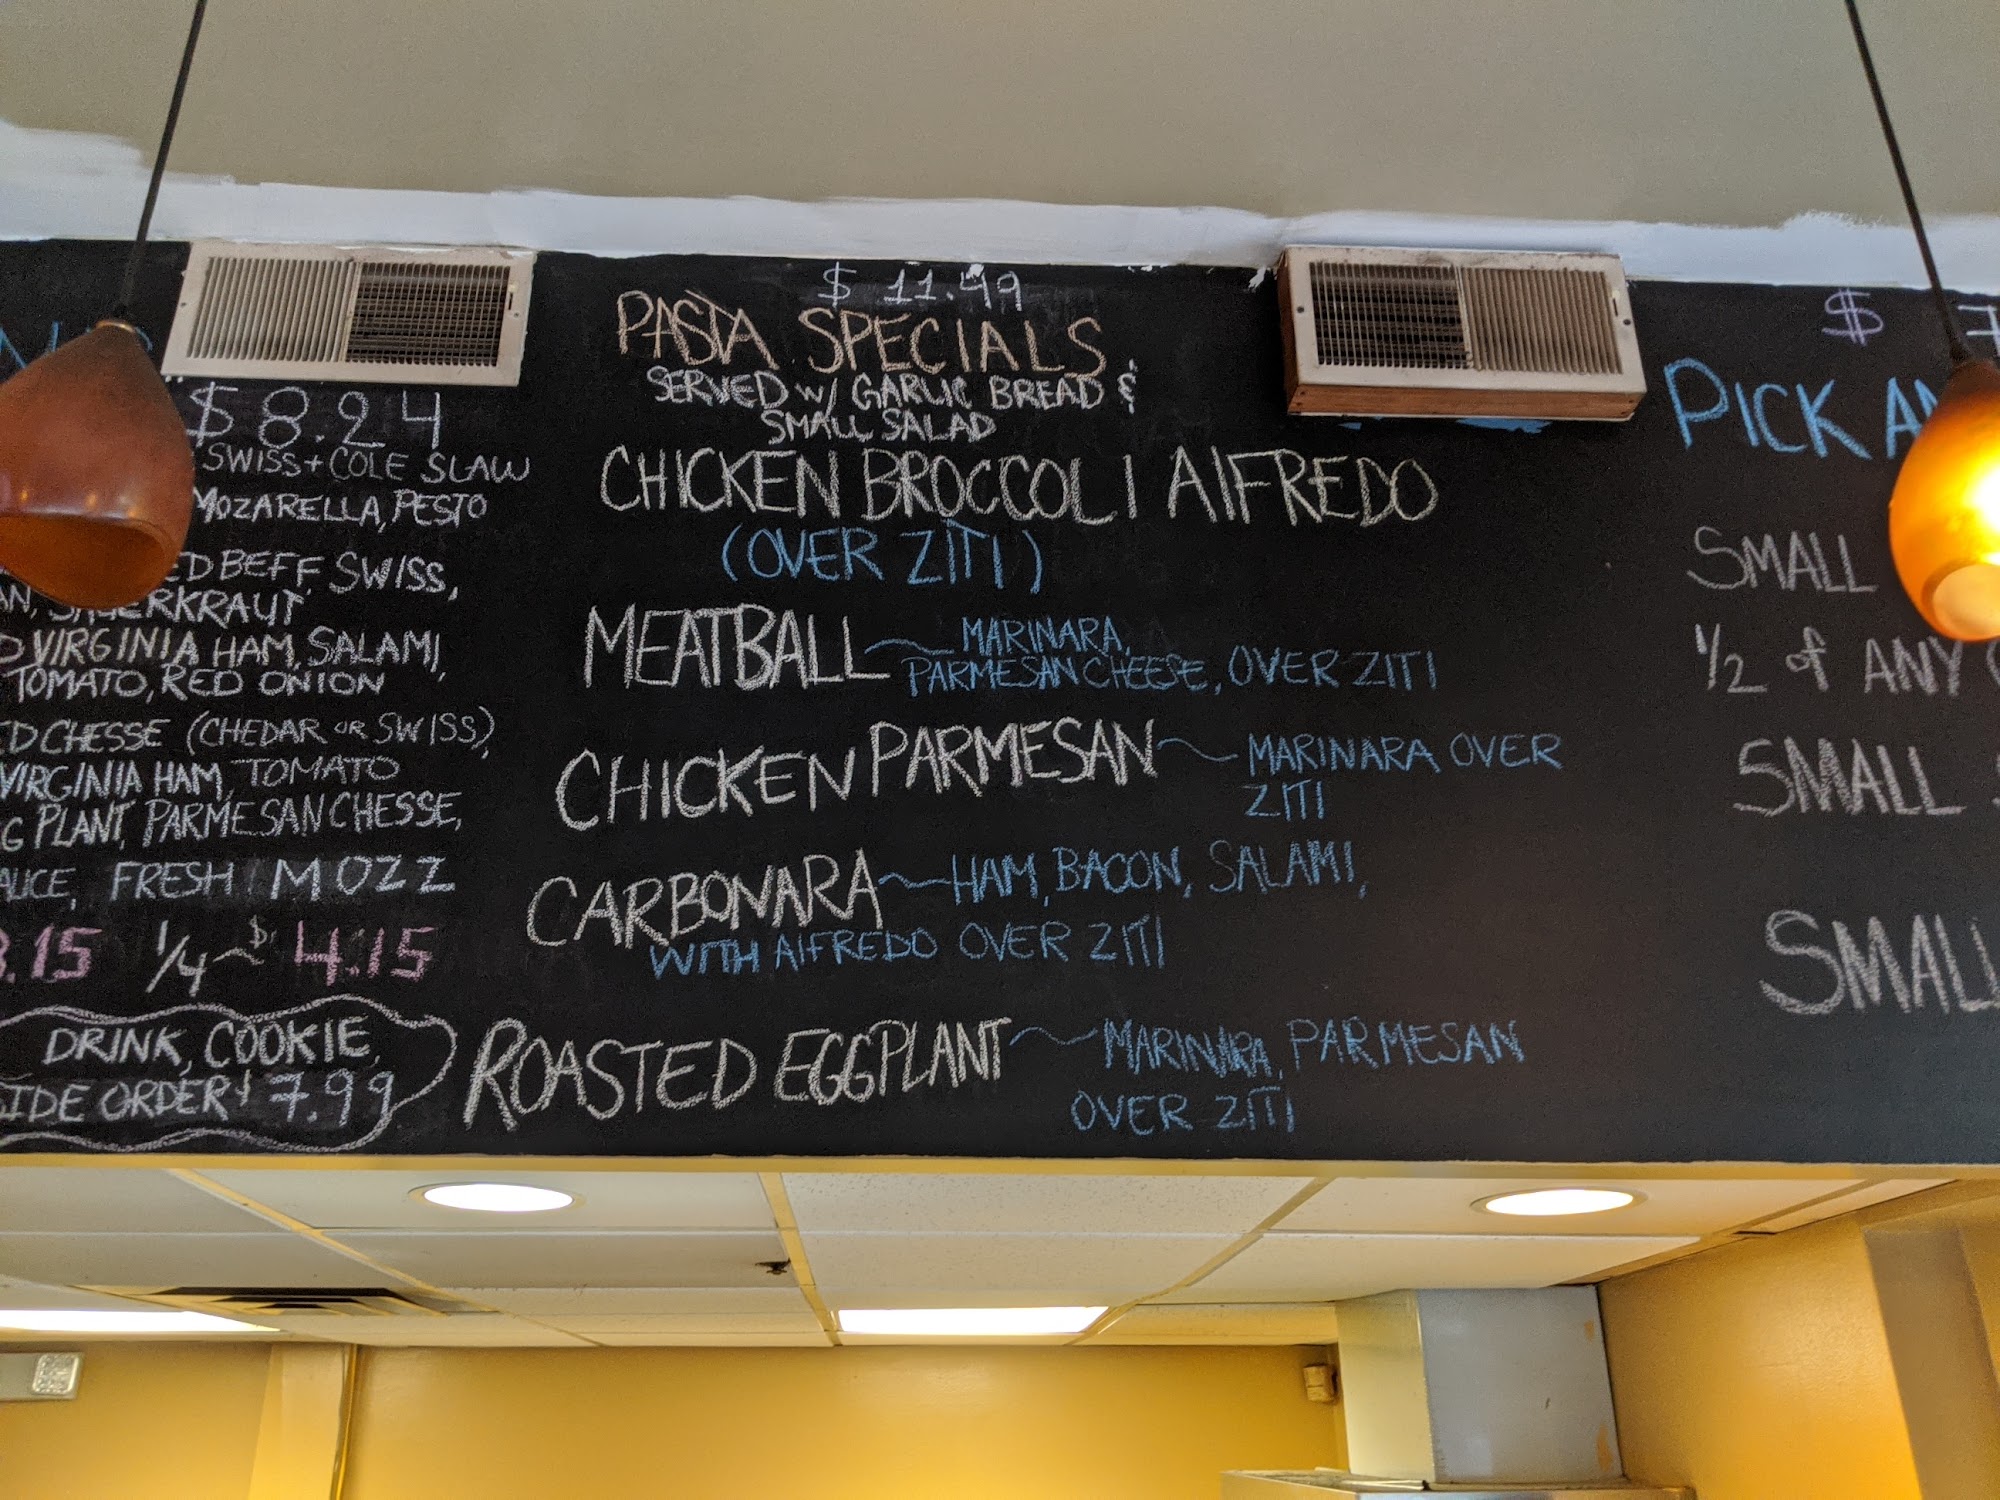 $ 8.24
SWISS + COLE SLAW
MOZARELLA, PESTO
BEFF, SWISS,
SAUERKRAUT
VIRGINIA HAM, SALAMI,
TOMATO, RED ONION
CHESSE (CHEDAR OR SWISS),
VIRGINIA HAM, TOMATO
PLANT, PARMESAN CHESSE,
FRESH MOZZ
.15 1/4 ~ $ 4.15
DRINK, COOKIE,
SIDE ORDER $ 7.99
$ 11.49
PASTA SPECIALS
SERVED W/ GARLIC BREAD &
SMALL SALAD
CHICKEN BROCCOLI AlFREDO
(OVER ZITI)
MEATBALL ~ MARINARA,
PARMESAN CHEESE, OVER ZITI
CHICKEN PARMESAN ~ MARINARA OVER
ZITI
CARBONARA ~ HAM, BACON, SALAMI,
WITH AlFREDO OVER ZITI
ROASTED EGGPLANT ~ MARINARA, PARMESAN
OVER ZITI
$ 7
PICK
SMALL
1/2 of ANY
SMALL
SMALL